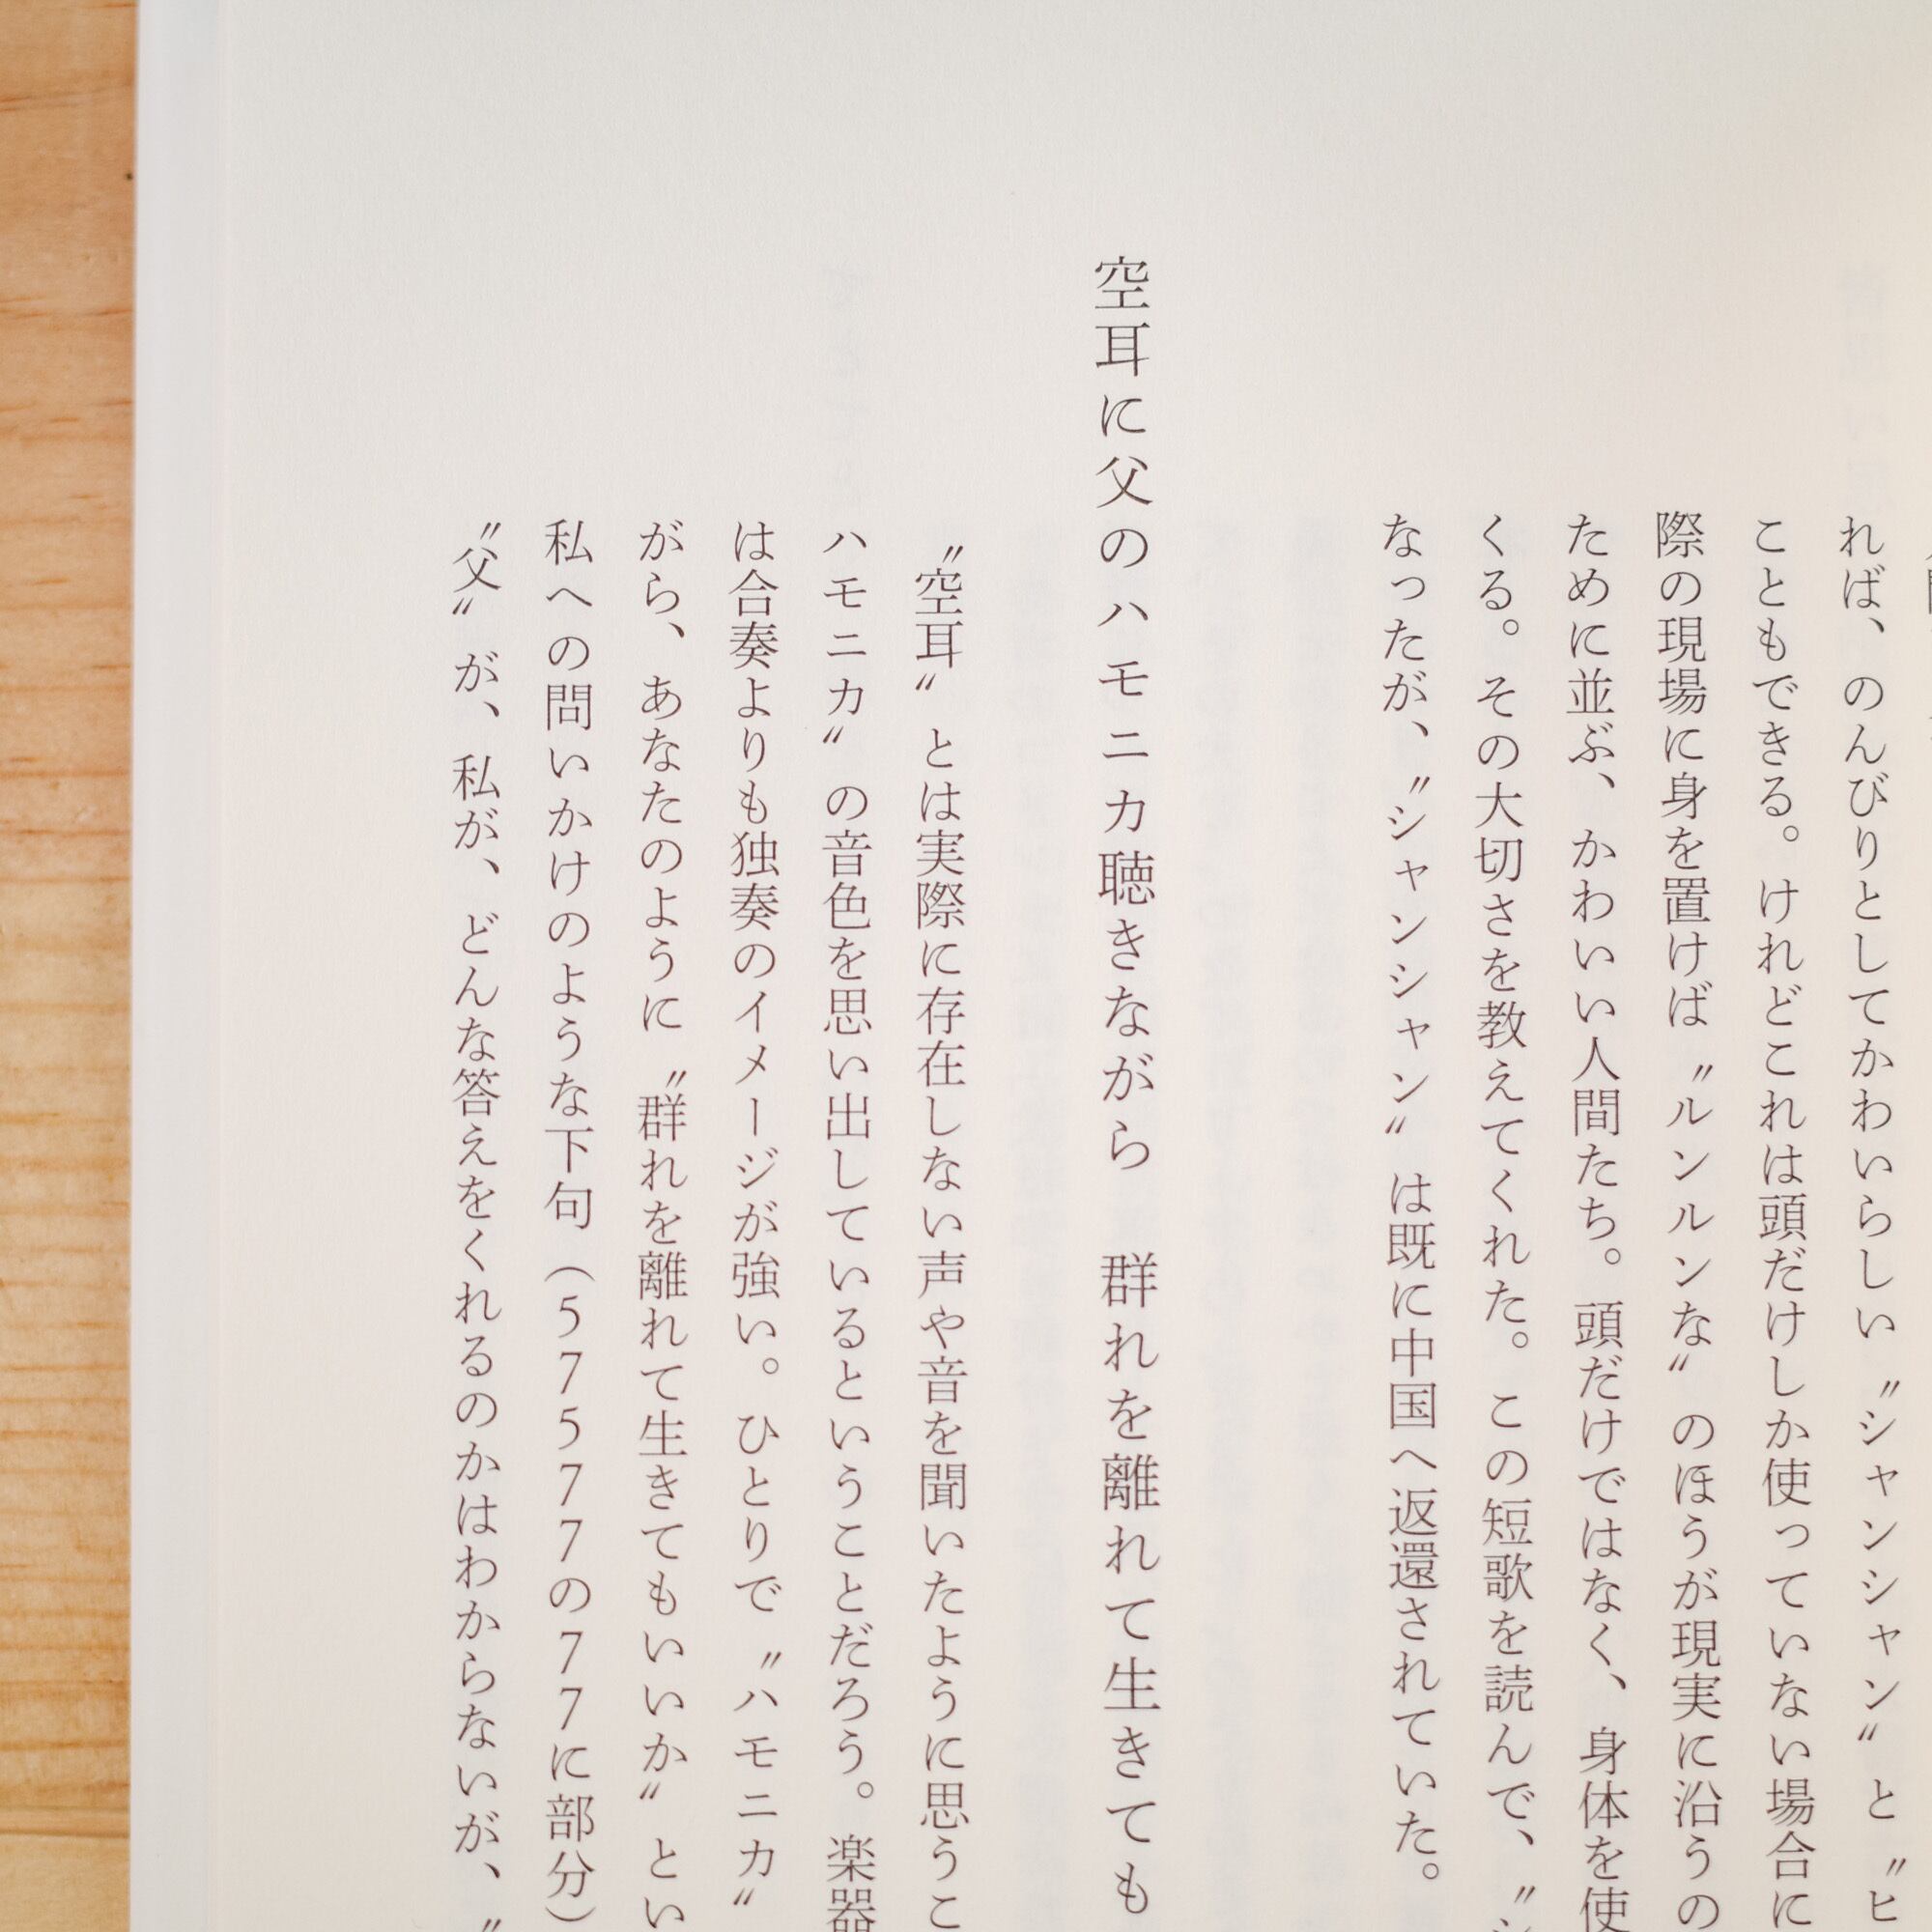 れば、のんびりとしてかわいらしい〝シャンシャン〟と〝ヒ
こともできる。けれどこれは頭だけしか使っていない場合に
際の現場に身を置けば〝ルンルンな〟のほうが現実に沿うの
ために並ぶ、かわいい人間たち。頭だけではなく、身体を使
くる。その大切さを教えてくれた。この短歌を読んで、〝シ
なったが、〝シャンシャン〟は既に中国へ返還されていた。
空耳に父のハモニカ聴きながら　群れを離れて生きても
〝空耳〟とは実際に存在しない声や音を聞いたように思うこ
ハモニカ〟の音色を思い出しているということだろう。楽器
は合奏よりも独奏のイメージが強い。ひとりで〝ハモニカ〟
がら、あなたのように〝群れを離れて生きてもいいか〟とい
私への問いかけのような下句（５７５７７の７７に部分）
〝父〟が、私が、どんな答えをくれるのかはわからないが、〝